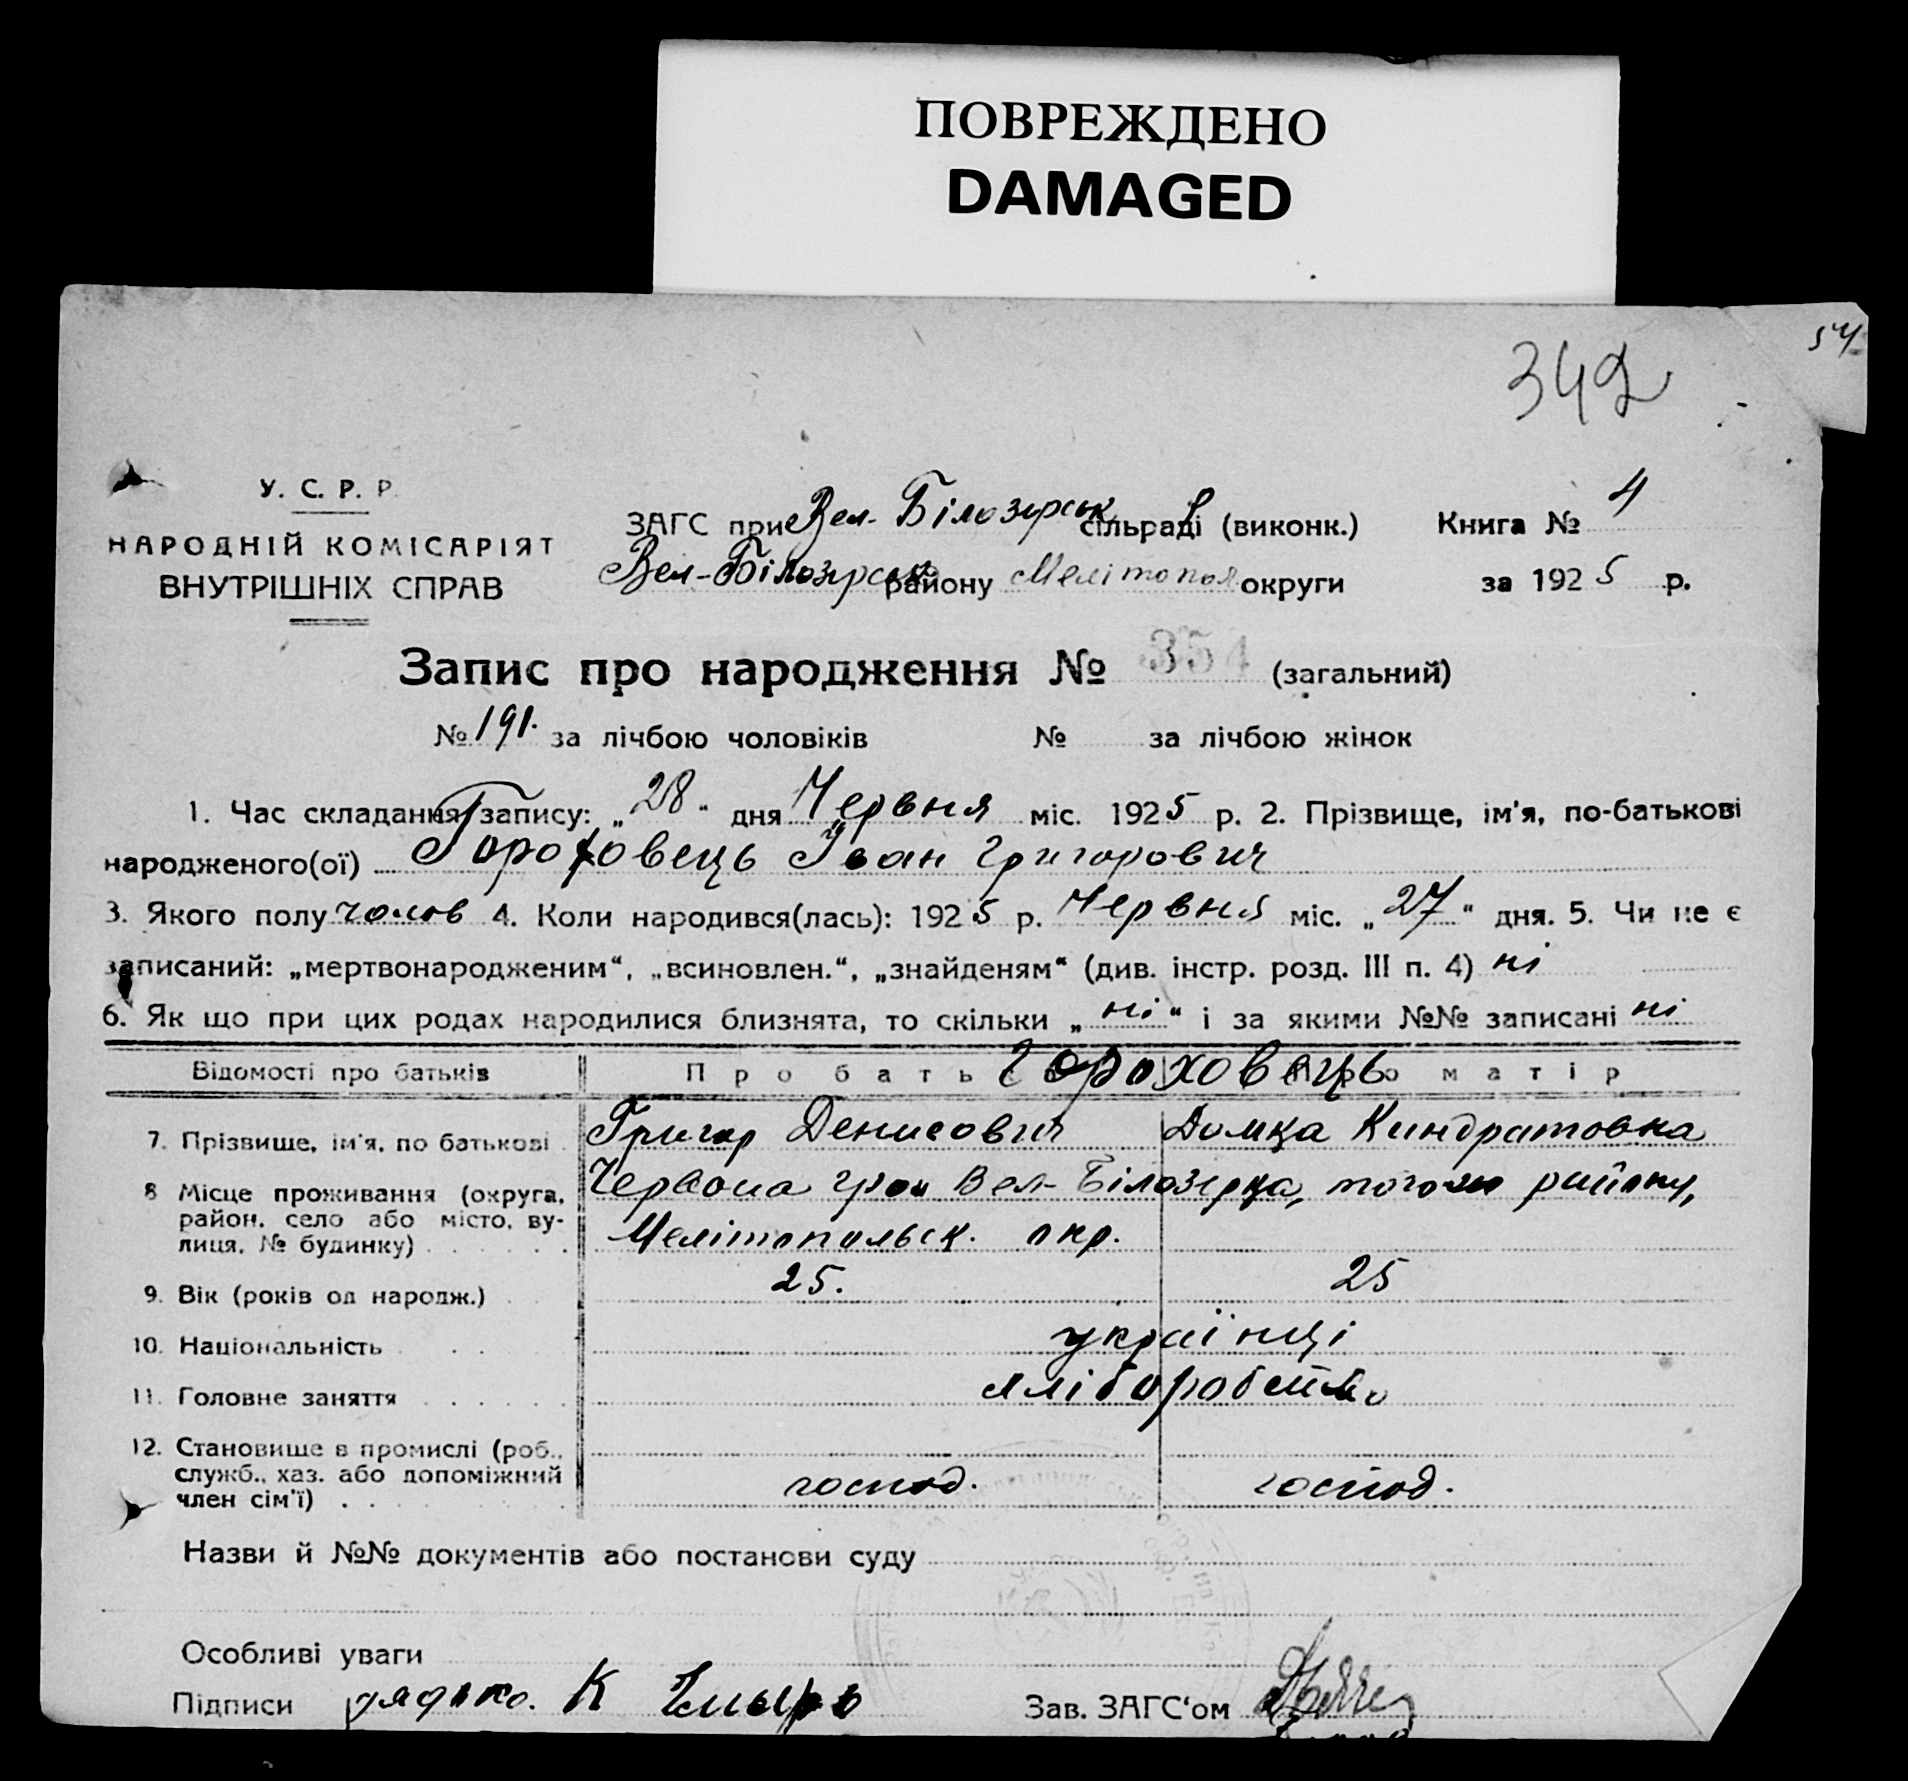 ПОВРЕЖДЕНО
DAMAGED
54
342
У. С. Р. Р.
НАРОДНІЙ КОМІСАРІЯТ
ВНУТРІШНІХ СПРАВ
ЗАГС при Вел-Білозірськ сільраді (виконк.) Книга № 4
Вел-Білозірськ району Мелітопол округи за 1925 р.
Запис про народження № 354 (загальний)
№ 191. за лічбою чоловіків № за лічбою жінок
1. Час складання запису: „28“ дня Червня міс. 1925 р. 2. Прізвище, ім'я, по-батькові
народженого(ої) Гороховець Іван Григорович
3. Якого полу чолов 4. Коли народився(лась): 1925 р. Червня міс. „27“ дня. 5. Чи не є
записаний: „мертвонародженим“, „всиновлен.“, „знайденям“ (див. інстр. розд. III п. 4) ні
6. Як що при цих родах народилися близнята, то скільки „ні“ і за якими №№ записані ні
Відомості про батьків Про батьк Гороховець Про матір
7. Прізвище, ім'я, по батькові Григор Денисович Домка Киндратовна
8 Місце проживання (округа, Червона Вел-Білозірка, того-ж району,
район, село або місто, ву-
лиця, № будинку) Мелітопольськ. окр.
9. Вік (років од народж.) 25. 25
10. Національність українці
11. Головне заняття хліборобство
12. Становище в промислі (роб.,
служб., хаз. або допоміжний
член сім'ї) господ. господ.
Назви й №№ документів або постанови суду
Особливі уваги
Підписи К Зав. ЗАГС'ом